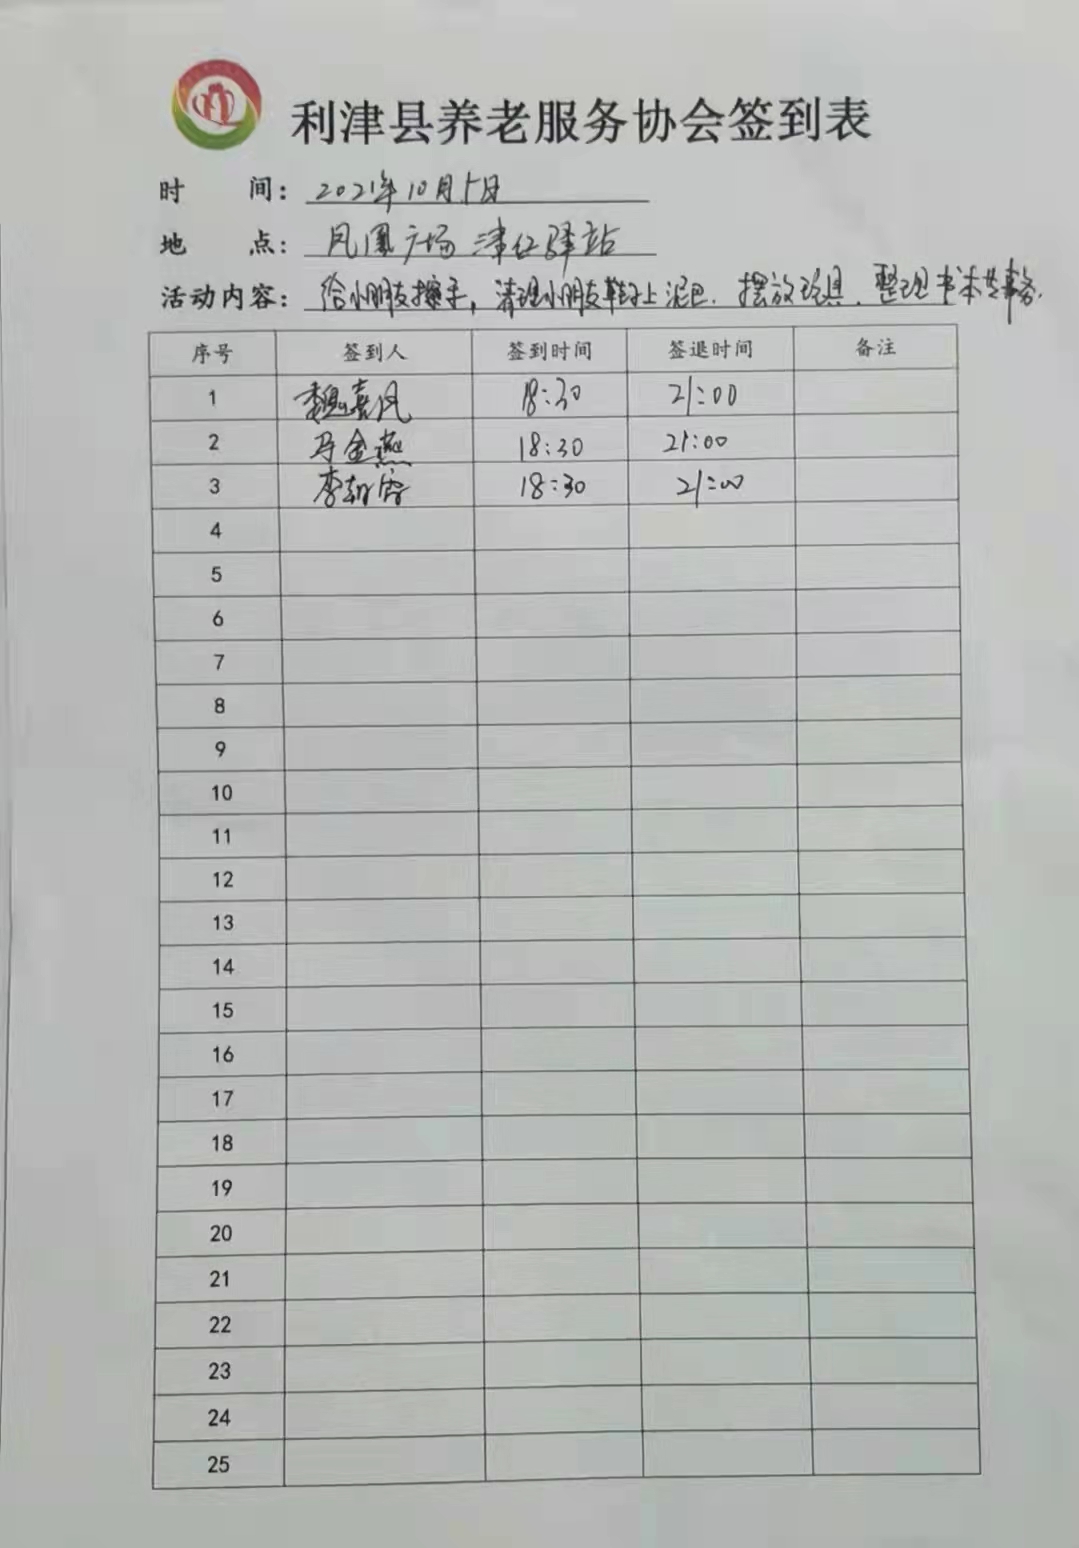 利津县养老服务协会签到表
时 间: 2021年10月5日
地 点: 凤凰广场 津红驿站
活动内容: 给小朋友擦手,清理小朋友鞋子上泥巴.摆放玩具.整理书本等事务.
序号 签到人 签到时间 签退时间 备注
1 魏嘉凤 18:30 21:00
2 马金燕 18:30 21:00
3 李 18:30 21:00
4
5
6
7
8
9
10
11
12
13
14
15
16
17
18
19
20
21
22
23
24
25